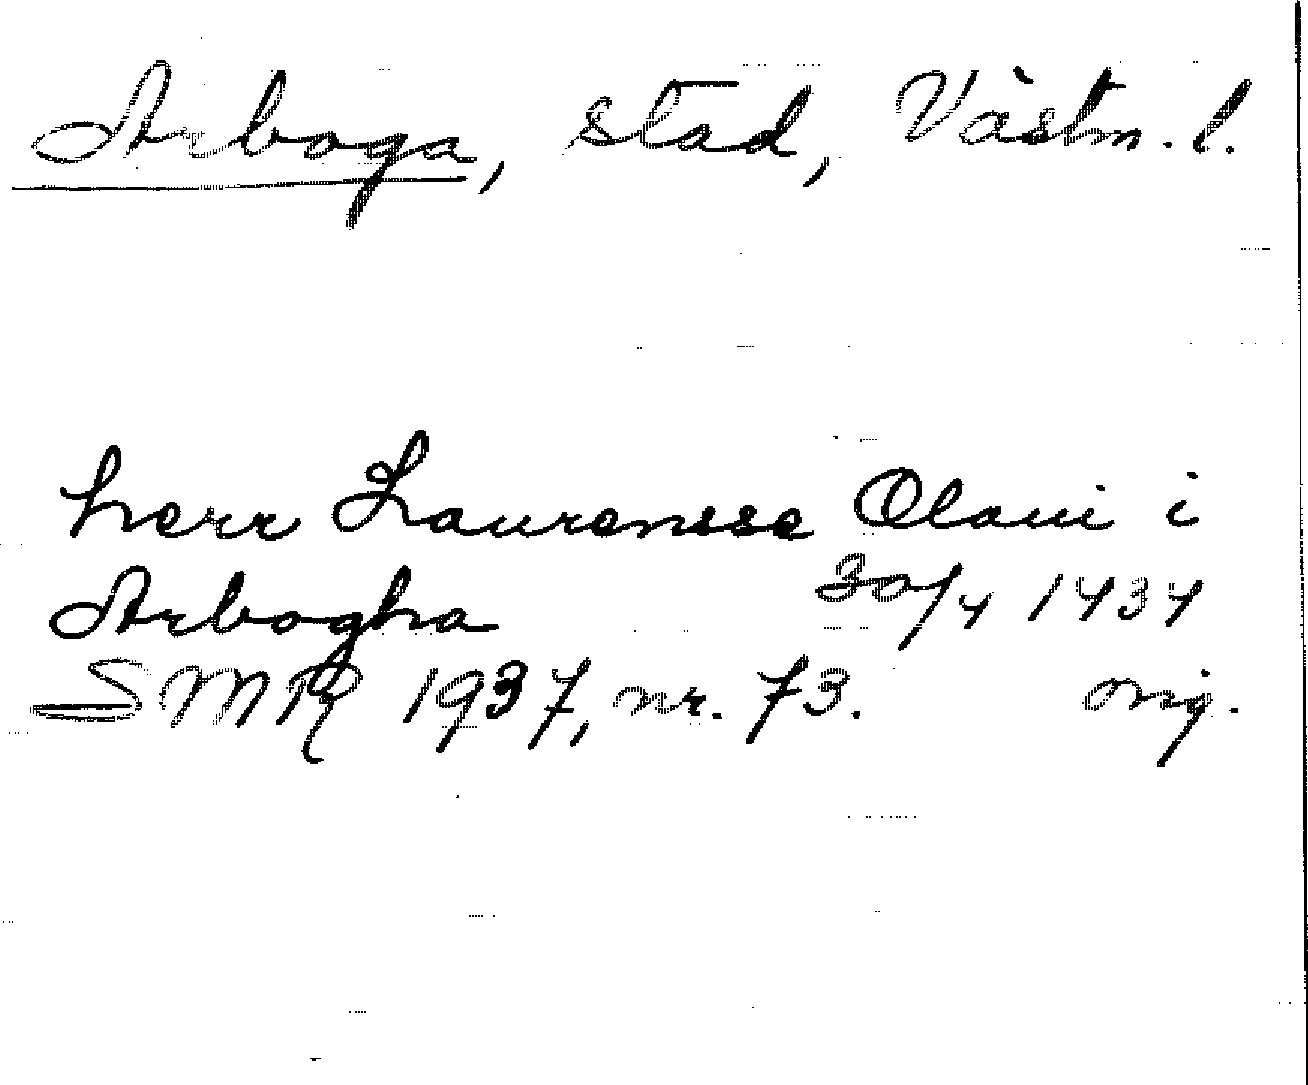 Arboga, stad, Västm. l.
herr Laurensse Olaui i
Arbogha 30/4 1434
SMR 1937, nr. 73. orig.